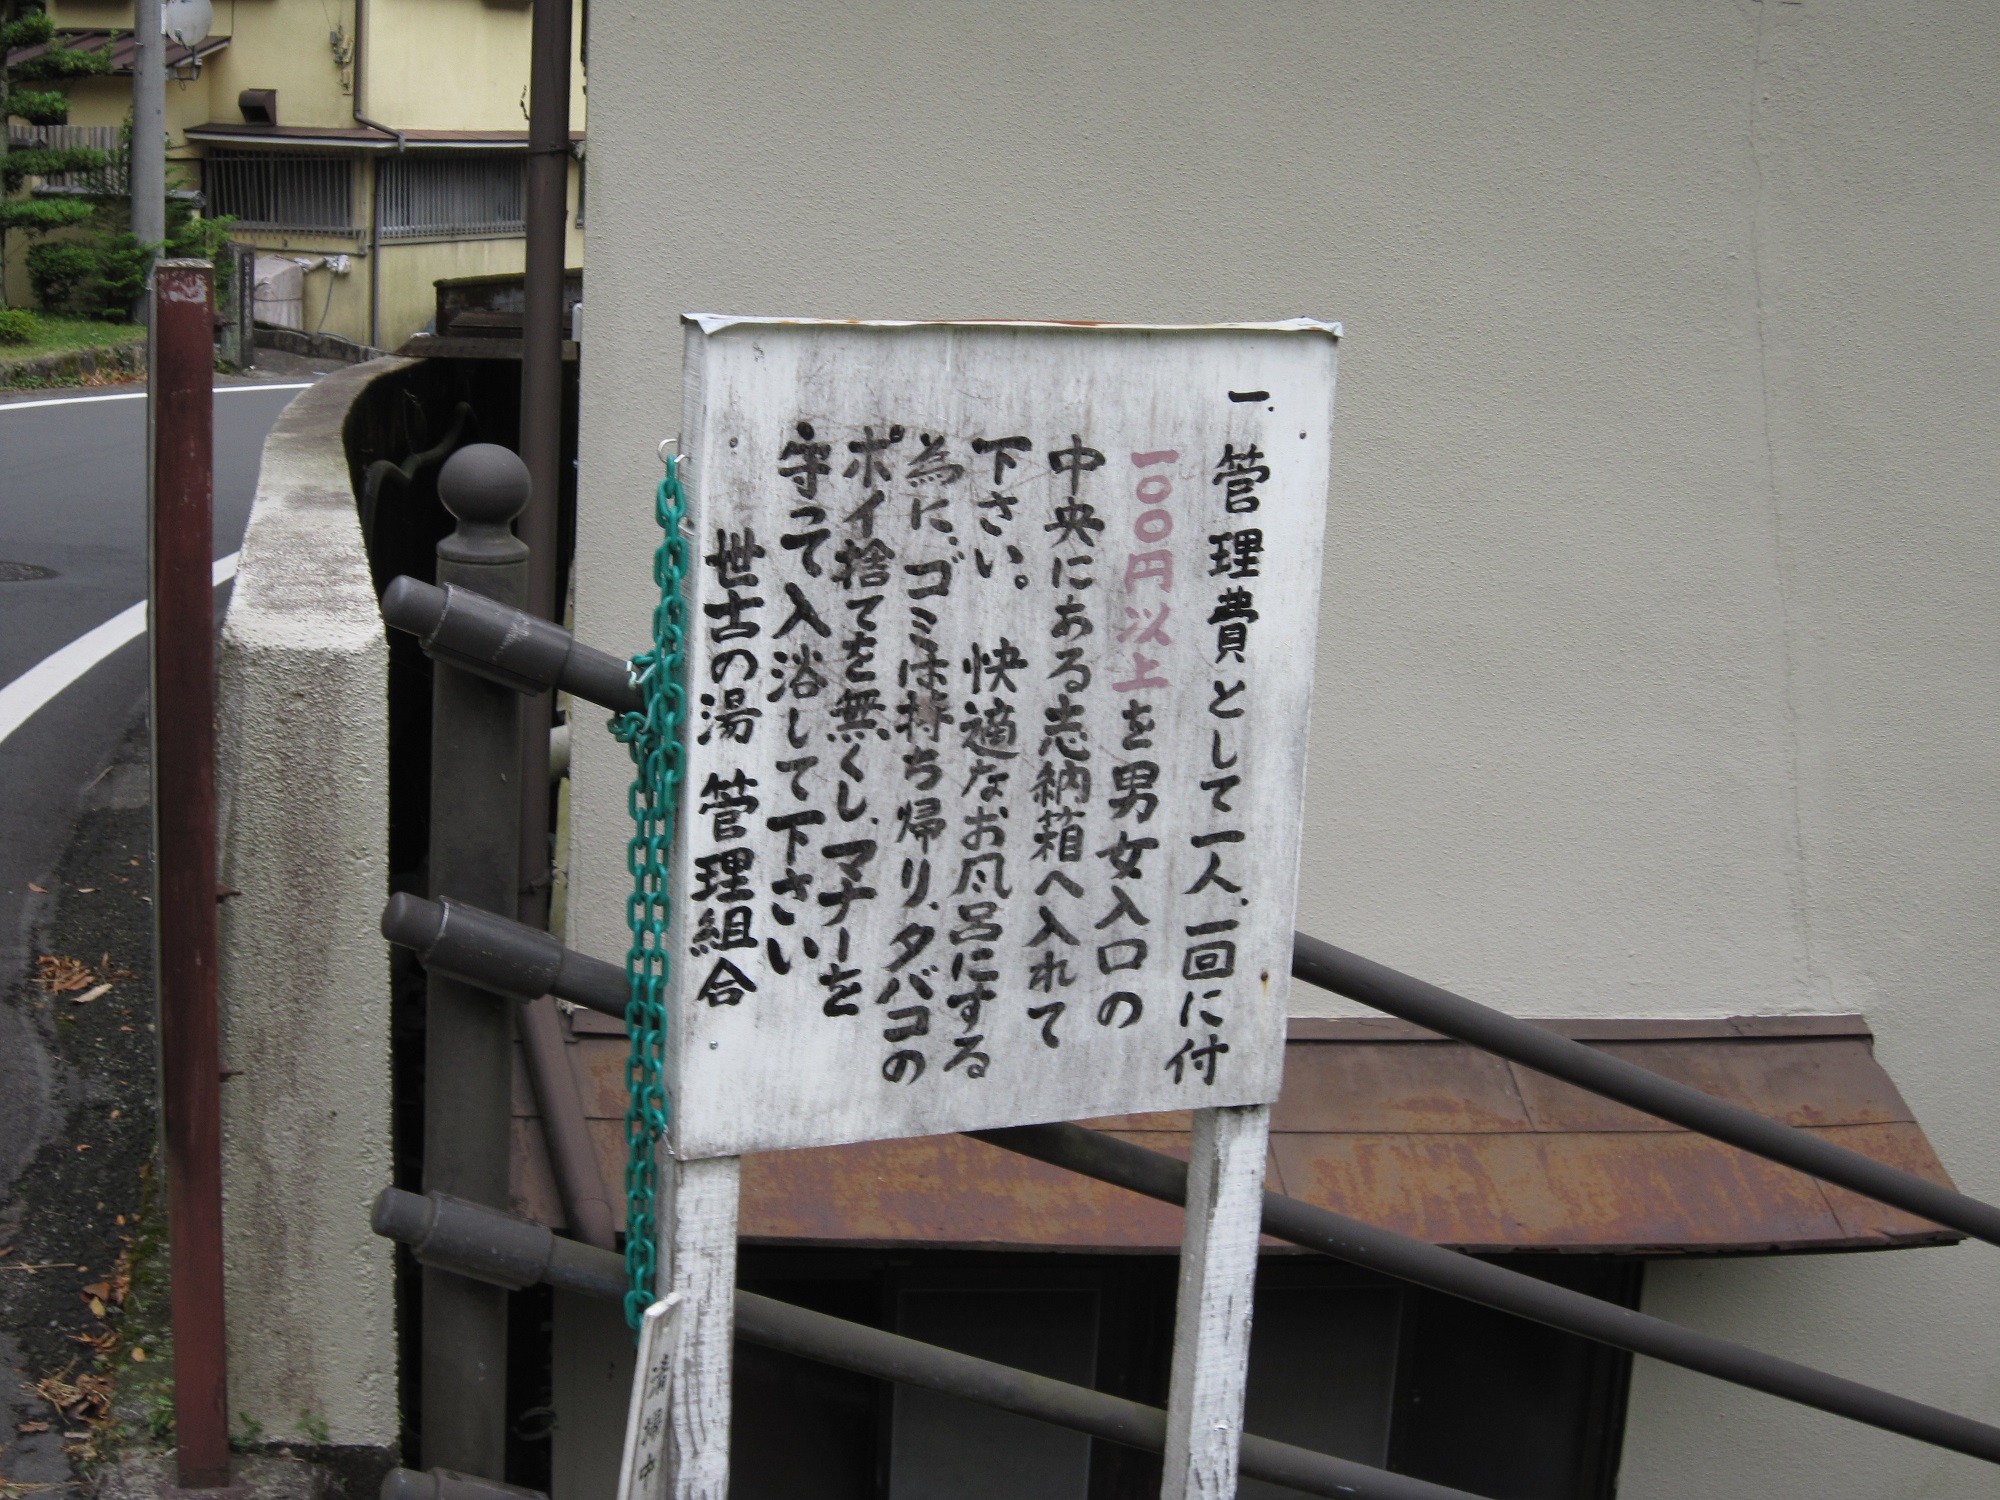 一、管理費として一人、一回に付
一〇〇円以上を男女入口の
中央にある志納箱へ入れて
下さい。 快適なお風呂にする
為に、ゴミは持ち帰り、タバコの
ポイ捨てを無くし、マナーを
守って入浴して下さい
世古の湯 管理組合
清掃中